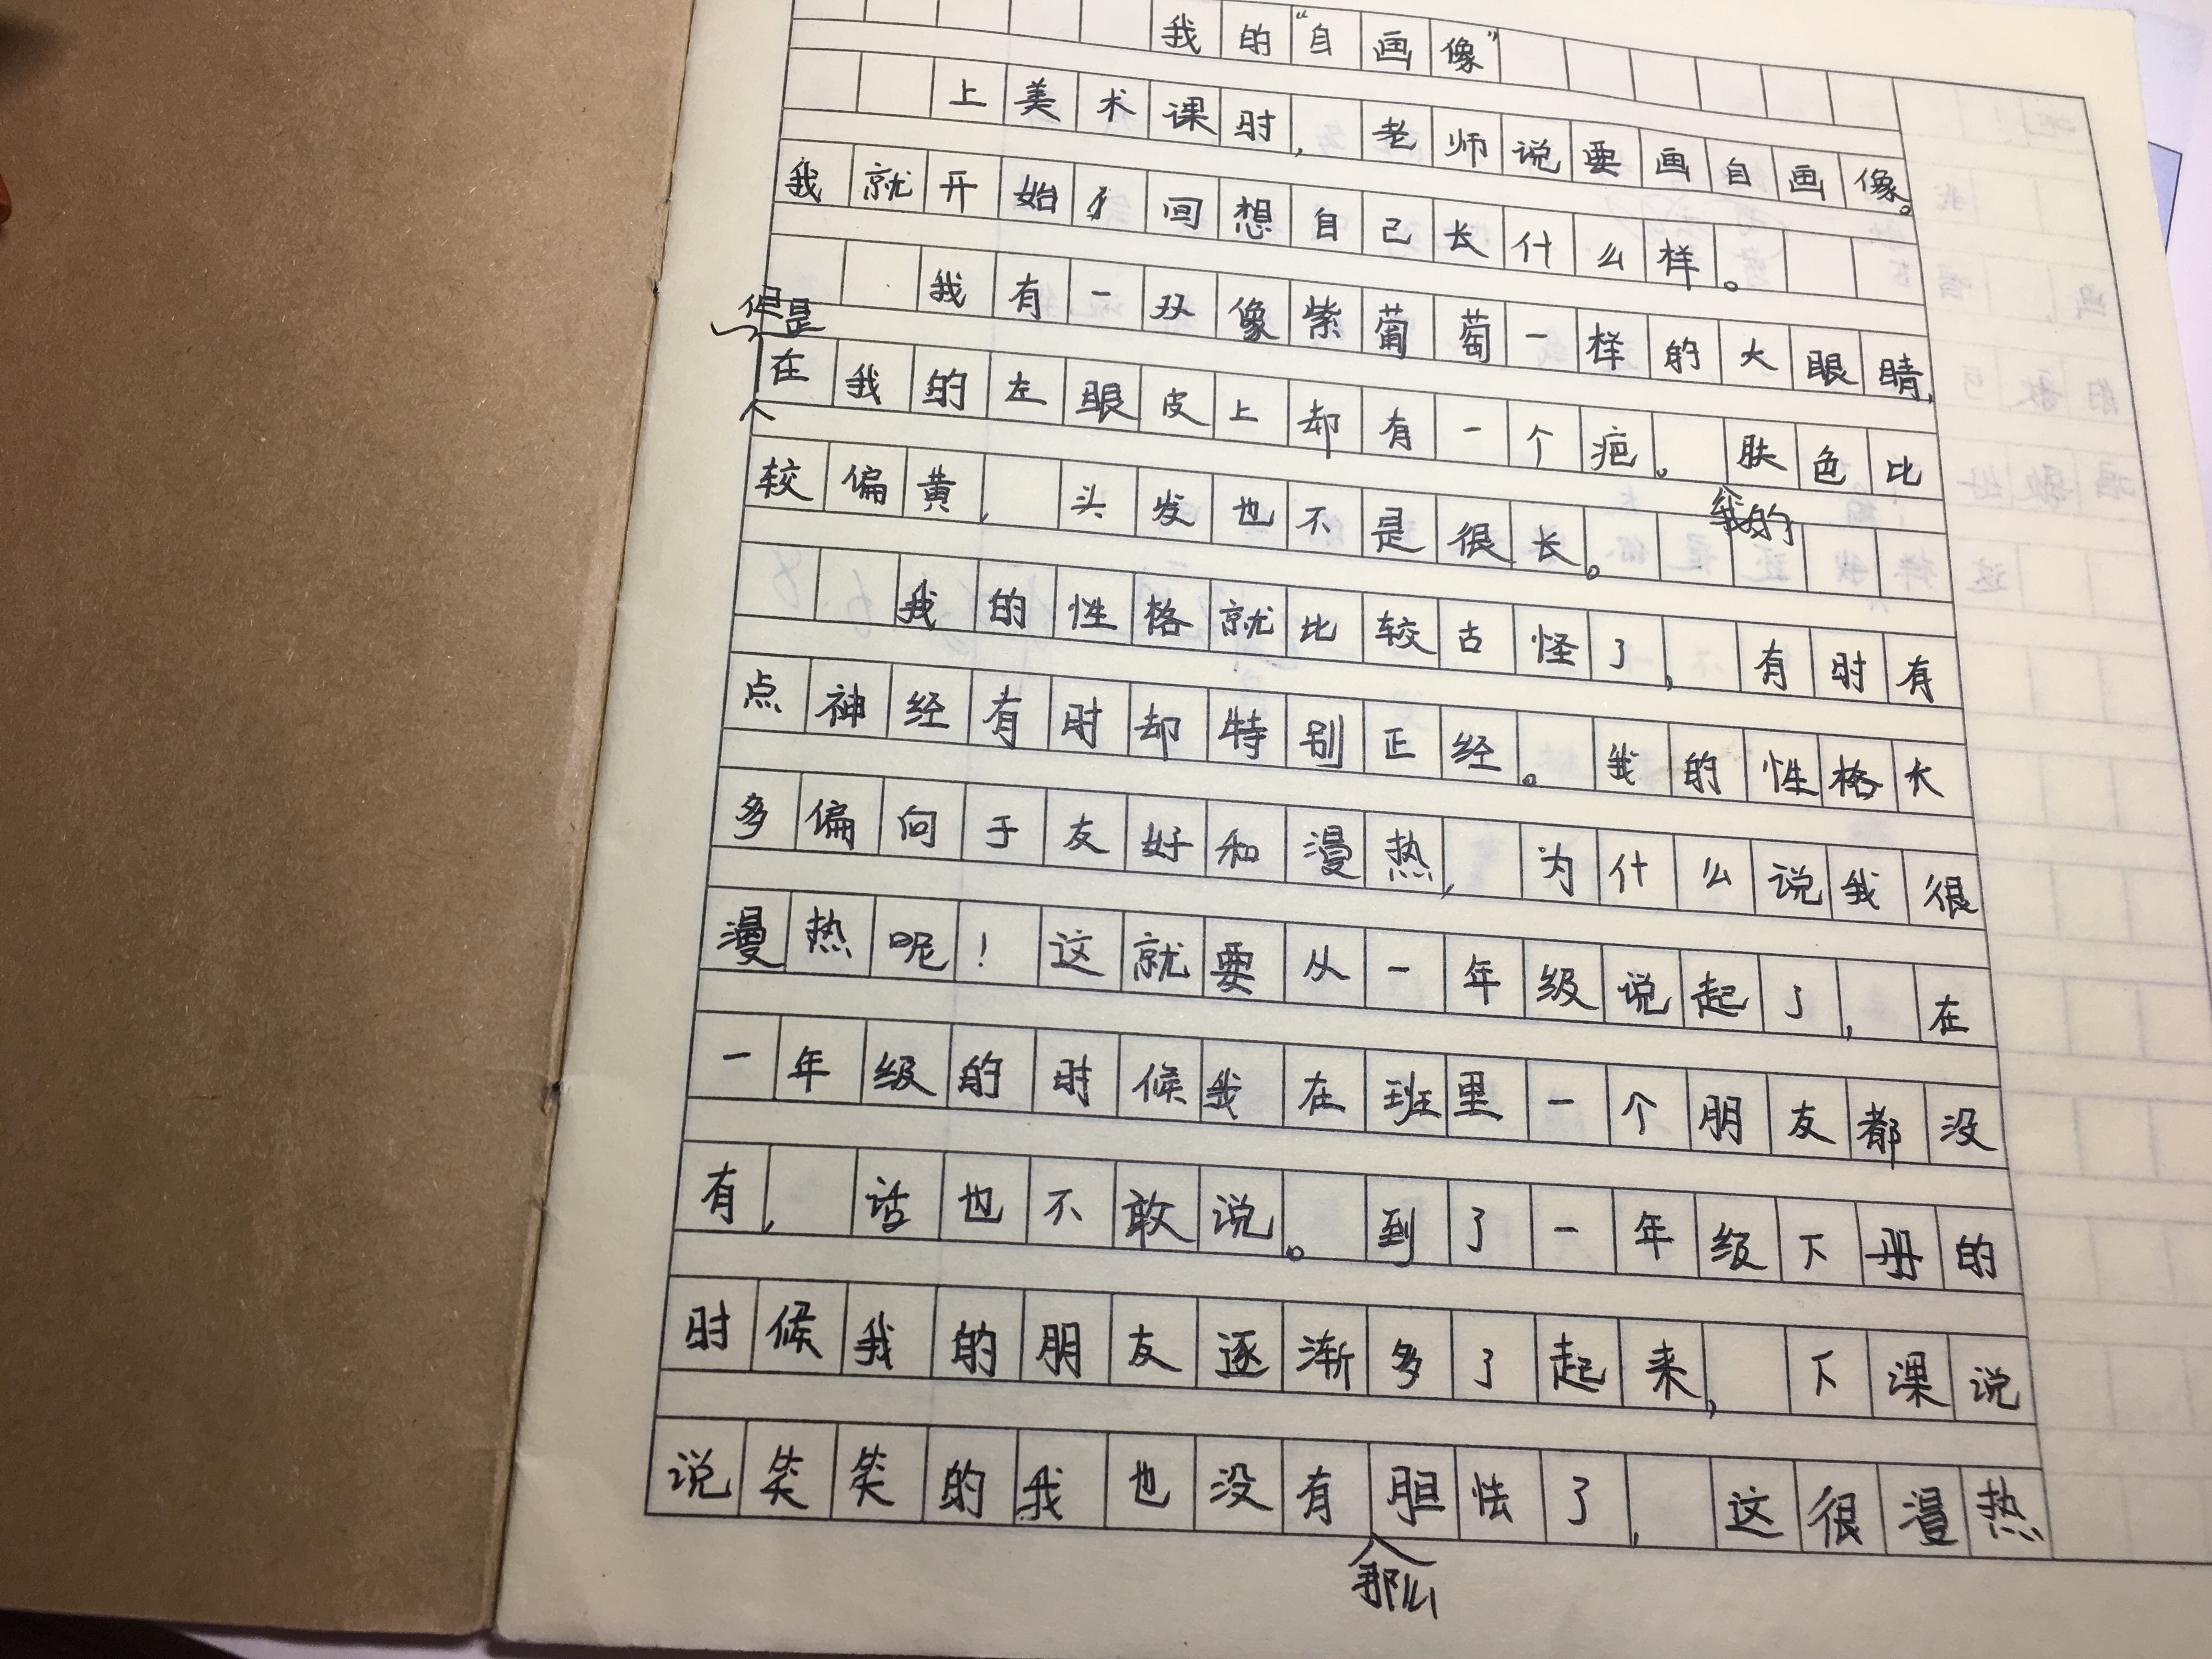 我的“自画像”
上美术课时,老师说要画自画像。
我就开始了回想自己长什么样。
我有一双像紫葡萄一样的大眼睛,
但是
在我的左眼皮上却有一个疤。肤色比
我的
较偏黄,头发也不是很长。
我的性格就比较古怪了,有时有
点神经有时却特别正经。我的性格大
多偏向于友好和漫热,为什么说我很
漫热呢!这就要从一年级说起了,在
一年级的时候我在班里一个朋友都没
有,话也不敢说。到了一年级下册的
时候我的朋友逐渐多了起来,下课说
说笑笑的我也没有胆怯了,这很漫热
那么